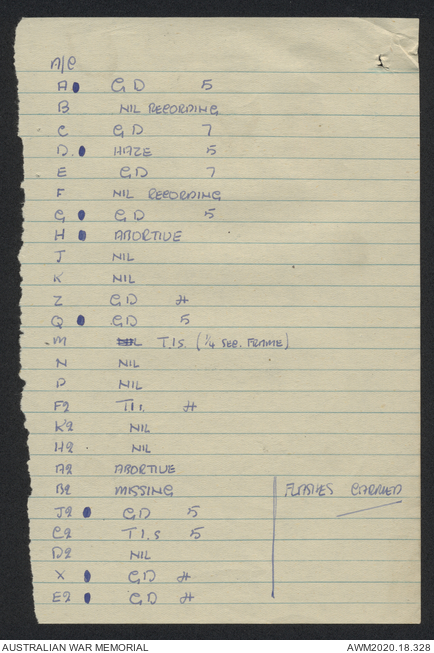 A/C
A • GD 5
B NIL RECORDING
C GD 7
D • HAZE 5
E GD 7
F NIL RECORDING
G • GD 5
H • ABORTIVE
J NIL
K NIL
Z GD 4
Q • GD 5
M NIL T.I.S. (1/4 SEC. FRAME)
N NIL
P NIL
F2 T.I. 4
K2 NIL
H2 NIL
A2 ABORTIVE
B2 MISSING FLASHES CARRIED
J2 • GD 5
C2 T.I.S 5
D2 NIL
X • GD 4
E2 • GD 4
AUSTRALIAN WAR MEMORIAL AWM2020.18.328